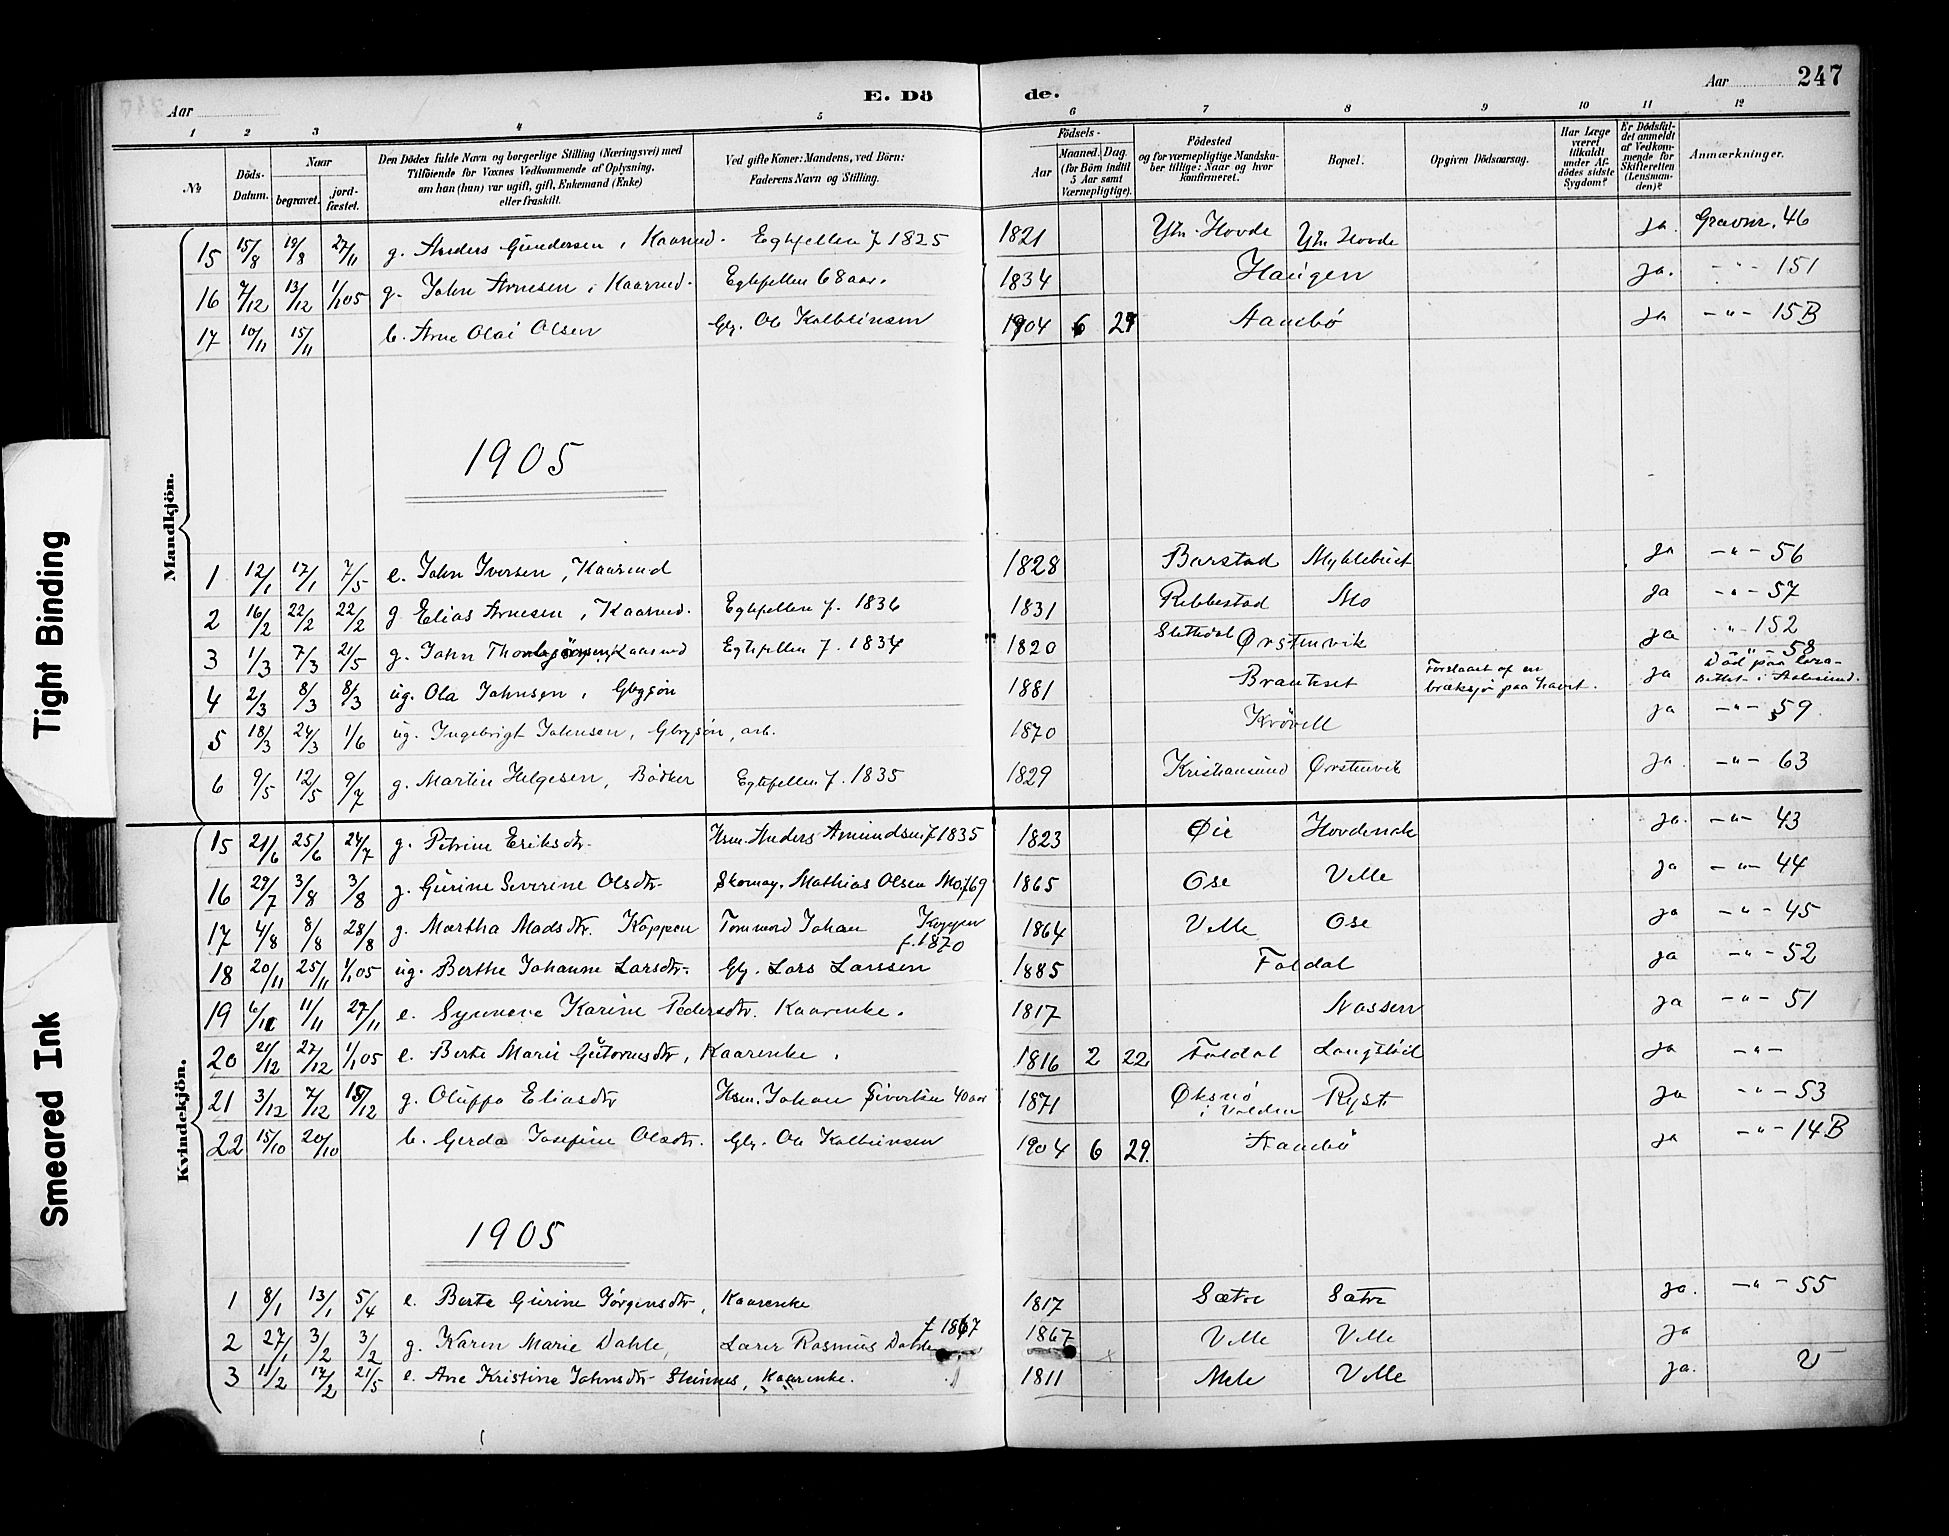 Aar
E. Dö de.
Aar 247
1 2 3 4 5 6 7 8 9 10 11 12
No
Döds-Datum.
Naar
begravet.
jord-fæstet.
Den Dödes fulde Navn og borgerlige Stilling (Næringsvei) med
Tilföiende for Voxnes Vedkommende af Oplysning,
om han (hun) var ugift, gift, Enkemand (Enke)
eller fraskilt.
Ved gifte Koner: Mandens, ved Börn:
Faderens Navn og Stilling.
Födsels-
Aar
Maaned. Dag.
(for Börn indtil
5 Aar samt
Værnepligtige).
Födested
og for værnepligtige Mandska-
ber tillige: Naar og hvor
konfirmeret.
Bopæl.
Opgiven Dödsaarsag.
Har Læge
været
tilkaldt
under Af-
dödes sidste
Sygdom?
Er Dödsfal-
det anmeldt
af Vedkom-
mende for
Skifteretten
(Lensman-
den)?
Anmærkninger.
Mandkjön.
15 15/8 19/8 27/11 g. Anders Gundersen, Kaarmd. Egtefellen f 1825 1821 Ytr. Hovde Ytr. Hovde ja. Gravnr. 46
16 7/12 13/12 1/1 05 g. John Arnesen, Kaarmd. Egtefellen 68 aar. 1834 Haugen ja. -"- 151
17 10/11 15/11 b. Arne Olai Olsen Gbr. Ole Kolbeinsen 1904 6 29 Aambö ja -"- 15B
1905
1 12/1 17/1 7/5 e. John Iversen, Kaarmd 1828 Barstad Myklebust ja -"- 56
2 16/2 22/2 22/2 g Elias Arnesen, Kaarmd. Egtefellen f. 1836 1831 Ribbestad Mo ja -"- 57
3 1/3 7/3 21/5 g. John Kaarmd Egtefellen f. 1834 1820 Slettedal Ørstenvik ja -"- 152
4 2/3 8/3 8/3 ug. Ola Johnsen, Gbrsøn 1881 Brauteset Forslaaet af en
bræksjø paa havet. ja -"- 58
Død paa
i Aalesund.
5 18/3 24/3 1/6 ug. Ingebrigt Johnsen, Gbrsøn, arb. 1870 Krøvell ja -"- 59
6 9/5 12/5 9/7 g. Martin Helgesen, Bødker Egtefellen f. 1835 1829 Kristiansund Ørstenvik ja. -"- 63
Kvindekjön.
15 21/6 25/6 24/7 g. Petrine Eriksdtr. Hsm. Anders Amundsen f 1835 1823 Øie Hovdenak ja. -"- 43
16 29/7 3/8 3/8 g. Gurine Severine Olsdtr. Skomag. Mathias Olsen Mo f 69 1865 Ose Velle ja -"- 44
17 4/8 8/8 28/8 g. Martha Madsdtr. Koppen Tormod Johan Koppen
f. 1870 1864 Velle Ose ja -"- 45
18 20/11 25/11 1/1 05 ug. Berthe Johanne Larsdtr. Gbr. Lars Larssen 1885 Foldal ja -"- 52
19 6/11 11/11 27/11 e. Synneve Karine Pedersdtr. Kaarenke. 1817 Nassen ja -"- 51
20 21/12 27/12 1/1 05 e. Berte Marie Gutormsdtr, Kaarenke. 1816 2 22 Foldal Langstöil ja -"-
21 3/12 7/12 18/12 g. Oluffa Eliasdtr Hsm. Johan Sivertsen 40 aar 1871 Øksnø
i Volden Rysti ja -"- 53
22 15/10 20/10 b. Gerda Josefine Olsdtr. Gbr. Ole Kolbeinsen 1904 6 29. Aambö ja -"- 14B
1905
1 8/1 13/1 5/4 e. Berte Gurine Jörgensdtr, Kaarenke 1817 Sætre Sætre ja. -"- 55
2 27/1 3/2 3/2 g. Karen Marie Dahle, Lærer Rasmus Dahle f 1867 1867 Velle Velle ja
3 11/2 17/2 21/5 e. Ane Kristine Johnsdtr Steinnes, Kaarenke. 1811 Mele Velle ja.
Tight Binding
Smeared Ink